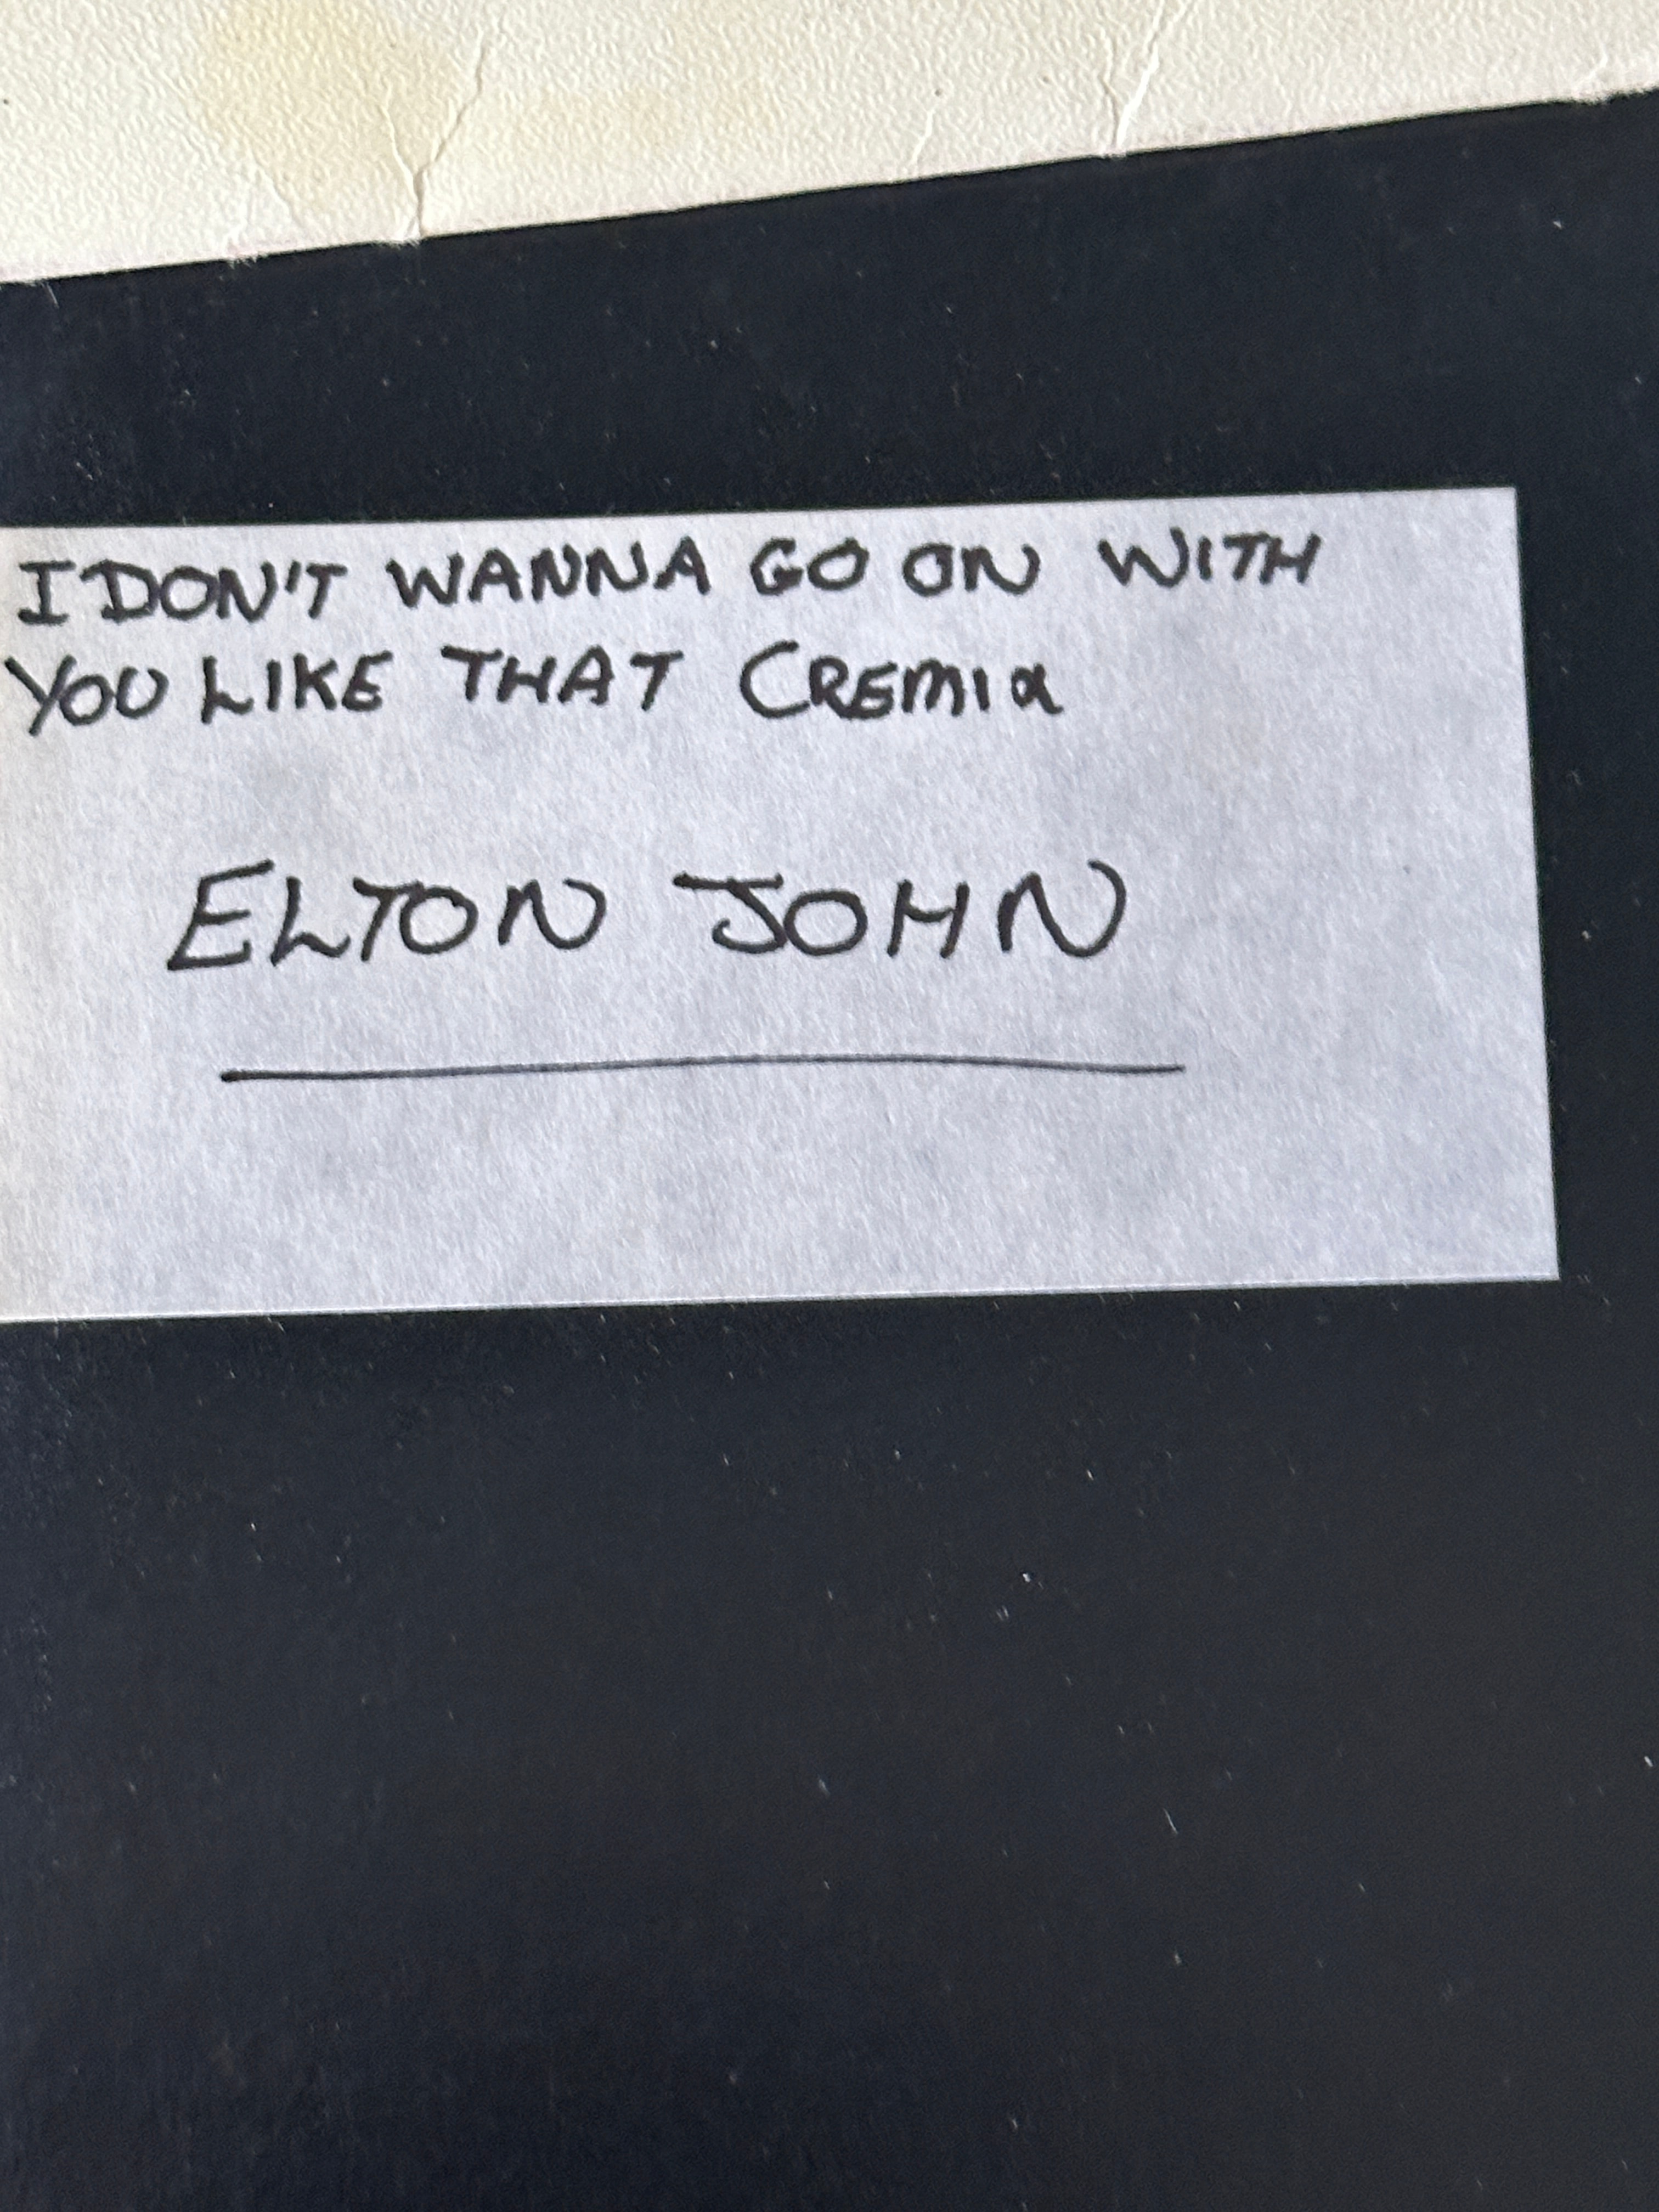 I DON'T WANNA GO ON WITH
YOU LIKE THAT CREMIX
ELTON JOHN